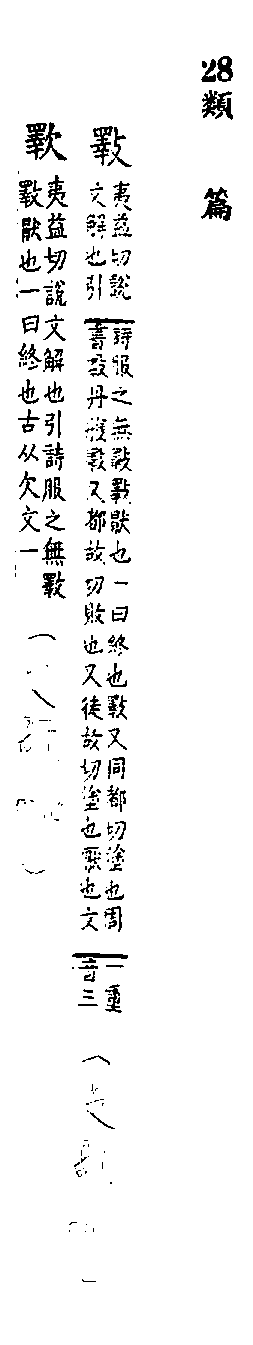 28類篇
斁
夷益切說
文解也引
詩服之無斁斁厭也一曰終也斁又同都切塗也周
書斁丹雘斁又都故切敗也又徒故切塗也厭也文
一重
音三
𣤙
夷益切說文解也引詩服之無斁
斁厭也一曰終也古从欠文一